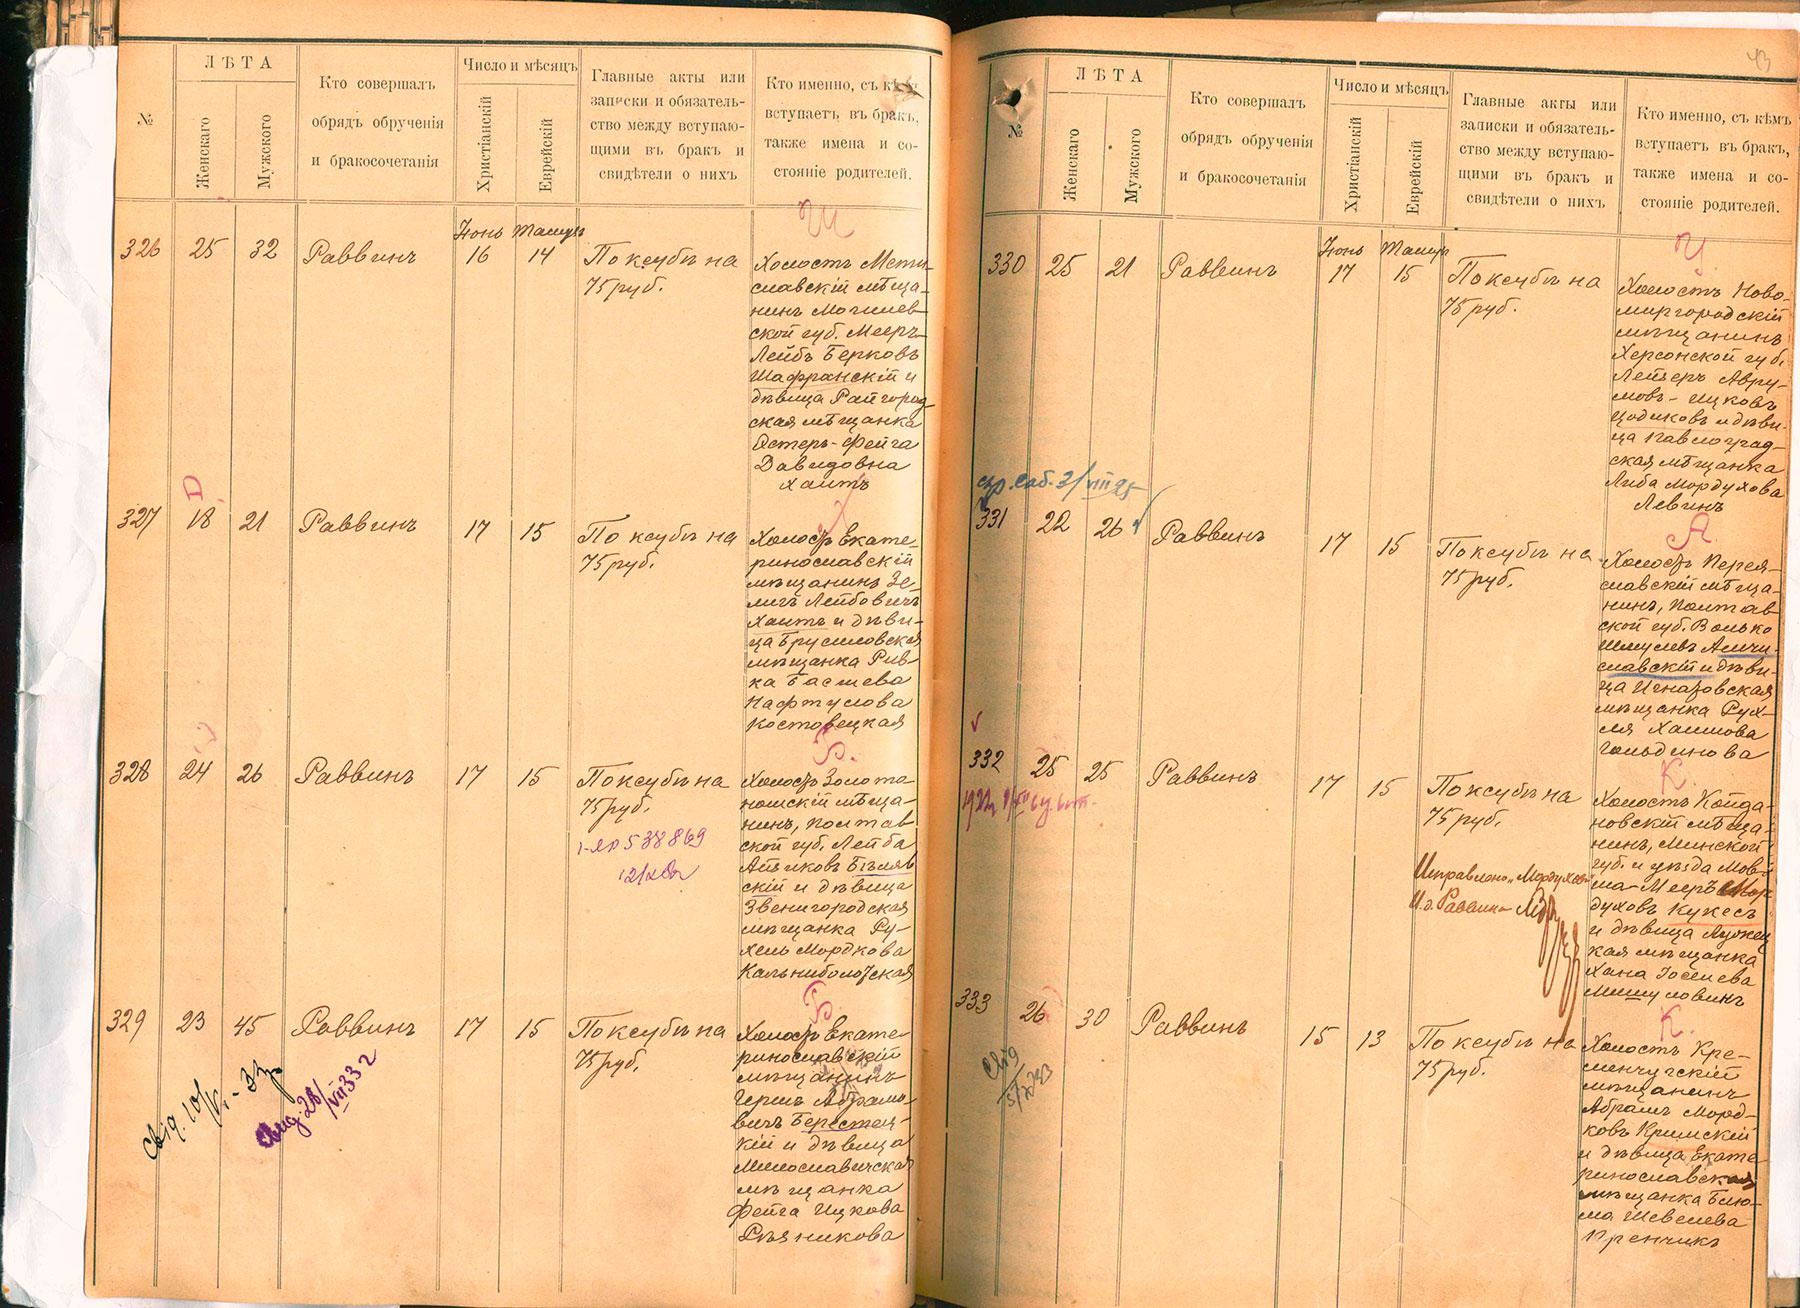 №
ЛѢТА
Женскаго
Мужского
Кто совершалъ
обрядъ обрученія
и бракосочетанія
Число и мѣсяцъ
Христіанскій
Еврейскій
Главные акты или
записки и обязатель-
ство между вступаю-
щими въ бракъ и
свидѣтели о нихъ
Кто именно, съ кѣмъ
вступаетъ въ бракъ,
также имена и со-
стояніе родителей.
Ш
Іюнь Тамузъ
326 25 32 Раввинъ 16 14 По ксубѣ на
75 руб.
Холостъ Мсти-
славскій мѣща-
нинъ Могилев-
ской губ. Мееръ-
Лейбъ Берковъ
Шафранскій и
дѣвица Райгород-
ская мѣщанка
Эстеръ-Фейга
Давидовна
Хаитъ
Х
327 18 21 Раввинъ 17 15 По ксубѣ на
75 руб.
Холостъ Екате-
ринославскій
мѣщанинъ Зе-
лигъ Лейбовичъ
Хаитъ и дѣви-
ца Брусиловская
мѣщанка Рив-
ка Басшева
Нафтулова
Костовецкая
Б.
328 24 26 Раввинъ 17 15 По ксубѣ на
75 руб.
538869
Холостъ Золото
ношскій мѣща-
нинъ, Полтав
ской губ. Лейба
Айзиковъ Бѣляв
скій и дѣвица
Звенигородская
мѣщанка Ру-
хель Мордкова
Кальниболотская
Б.
329 23 45 Раввинъ 17 15 По ксубѣ на
75 руб.
Холостъ Екате
ринославскій
мѣщанинъ
Гершъ Абрамо-
вичъ Берестец-
кій и дѣвица
Милославичская
мѣщанка
Фейга Ицкова
Рѣзникова
43
№
ЛѢТА
Женскаго
Мужского
Кто совершалъ
обрядъ обрученія
и бракосочетанія
Число и мѣсяцъ
Христіанскій
Еврейскій
Главные акты или
записки и обязатель-
ство между вступаю-
щими въ бракъ и
свидѣтели о нихъ
Кто именно, съ кѣмъ
вступаетъ въ бракъ,
также имена и со-
стояніе родителей.
Ц.
Іюнь Тамузъ
330 25 21 Раввинъ 17 15 По ксубѣ на
75 руб.
Холостъ Ново-
миргородскій
мѣщанинъ
Херсонской губ.
Лейзеръ Авру-
мовъ-Ицковъ
Цодиковъ и дѣви-
ца Павлоград-
ская мѣщанка
Либа Мордухова
Левинъ
А.
331 22 26 Раввинъ 17 15 По ксубѣ на
75 руб.
Холостъ Перея-
славскій мѣща-
нинъ, Полтав
ской губ. Волько
Шмулевъ Амчи-
славскій и дѣви-
ца Игнатовская
мѣщанка Рух-
ля Хаимова
Гольдинова
К.
332 25 25 Раввинъ 17 15 По ксубѣ на
75 руб.
Исправлено „Мордуховъ"
И. д. Раввина
Холостъ Койда-
новскій мѣща-
нинъ, Минской
губ. и уѣзда Мов-
ша-Мееръ Мор
духовъ Кукесъ
и дѣвица
кая мѣщанка
Хана Іоселева
Мишуловинъ
К.
333 26 30 Раввинъ 15 13 По ксубѣ на
75 руб.
Холостъ Кре-
менчугскій
мѣщанинъ
Абрамъ Морд-
ковъ Кримскій
и дѣвица Екате-
ринославская
мѣщанка Блю-
ма Шевелева
Кренчикъ